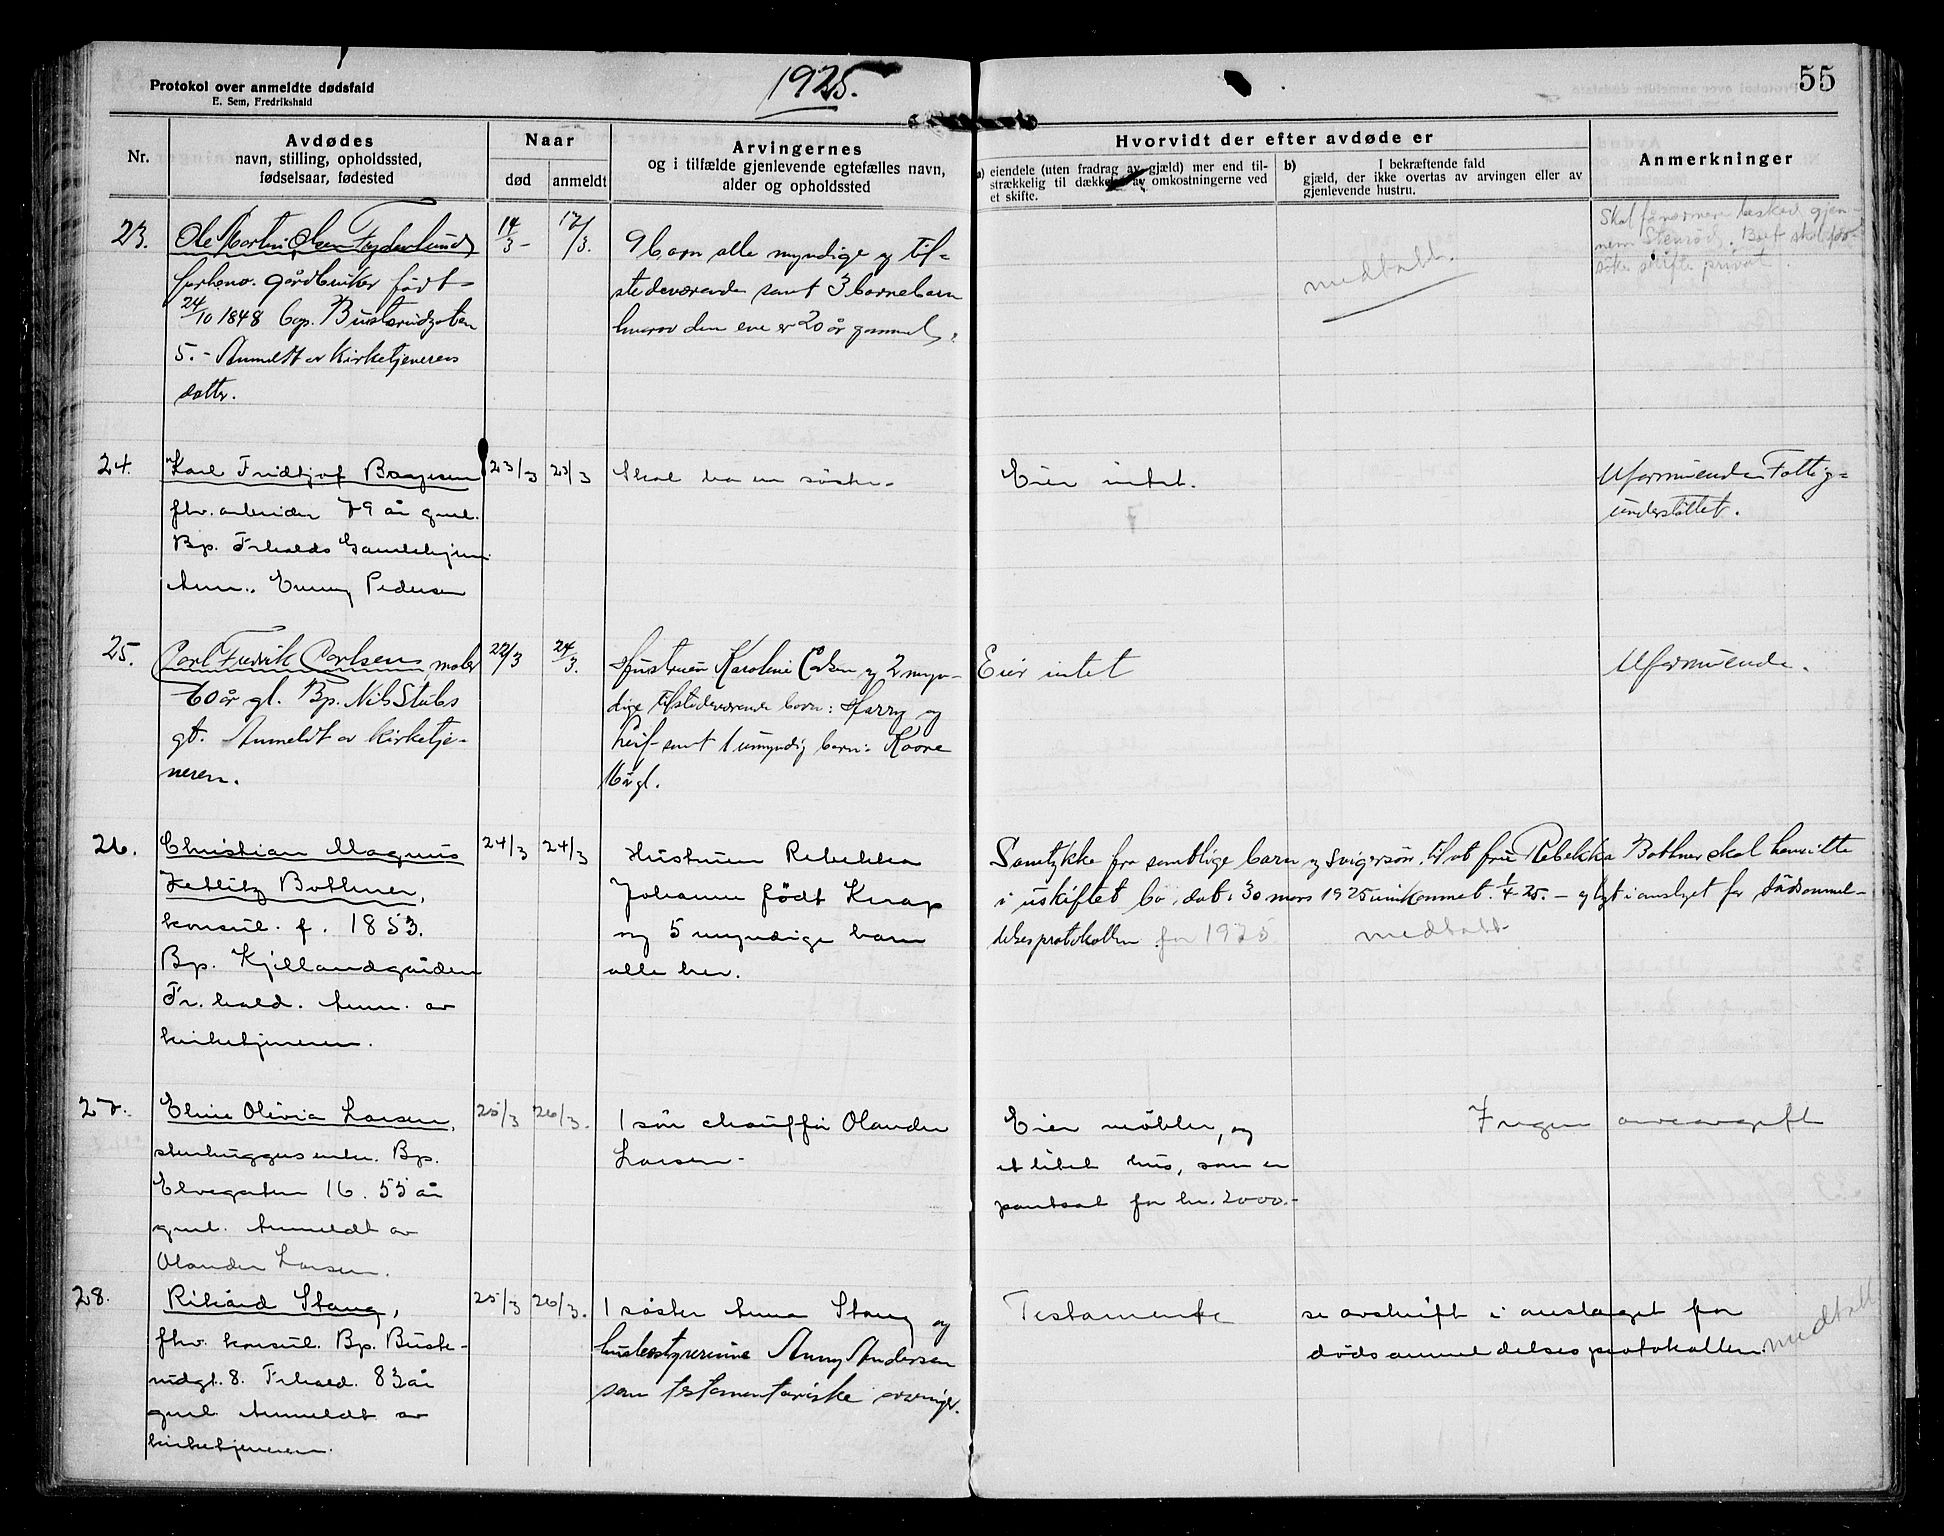 1925.
55
Protokol over anmeldte dødsfald
E. Sem, Fredrikshald
Nr.
Avdødes
navn, stilling, opholdssted,
fødselsaar, fødested
Naar
død
anmeldt
Arvingernes
og i tilfælde gjenlevende egtefælles navn,
alder og opholdssted
Hvorvidt der efter avdøde er
a) eiendele (uten fradrag av gjæld) mer end til-
strækkelig til dækkelse av omkostningerne ved
et skifte.
b) I bekræftende fald
gjæld, der ikke overtas av arvingen eller av
gjenlevende hustru.
Anmerkninger
23.
Ole Martin Olsen
forhenv. gårdbruker født
24/10 1848 bop. Busterudgaten
5. - Anmeldt av Kirketjenerens
datter.
14/3-
17/3.
9 barn alle myndige og til-
stedeværende samt 3 barnebarn
hvorav den ene er 20 år gammel.
medtatt.
Skal få nærmere beskd gjen-
nem Stenrød. Boet skal for-
søkes skifte privat
24.
Karl Fridtjof Bøgesen
fhv. arbeider 79 år gml.
Bp. Fr.halds Gamlehjem.
Anm. Emmy Pedersen
23/3
23/3
Skal ha en søster.
Eier intet.
Uformuende Fattig-
understøttet.
25.
Carl Fredrik Carlsen, maler
60 år gl. Bp. Nils Stubs
gt. Anmeldt av Kirketje-
neren.
22/3
24/3.
Hustruen Karoline Carlsen og 2 myn-
dige tilstedeværende barn: Harry og
Leif samt 1 umyndig barn: Kaare
16 år gl.
Eier intet
Uformuende.
26.
Christian Magnus
Zetlitz Bothner,
konsul. f. 1853.
Bp. Kjellandgården
Fr.hald. Anm. av
kirketjeneren.
24/3
24/3
Hustruen Rebekka
Johanne født Knap
og 5 myndige barn
alle her.
Samtykke fra samtlige barn og svigersøn til at frue Rebekka Bothner skal hensitte
i uskiftet bo, dat. 30 mars 1925 innkommet 1/4-25. - og lagt i omslaget for dødsanmel-
delsesprotokollen for 1925 medtatt
27.
Eline Olivia Larsen,
stenhuggerenke. Bp.
Elvegaten 16. 55 år
gml. Anmeldt av
Olander Larsen.
25/3
26/3.
1 søn chauffør Olander
Larsen -
Eier møbler, og
et litet hus, som er
pantsat for kr. 2000.-
Ingen arveavgift
28.
Rikard Stang,
fhv. konsul. Bp. Buste-
rudgt. 8. Fr.hald. 83 år
gml. Anmeldt av
kirketjeneren.
25/3
26/3.
1 søster Anna Stang og
husbestyrerinne Anny Andersen
som testamentariske arvinger.
Testamente
se avskrift i omslaget for
dødsanmeldelsesprotokollen.
medtatt